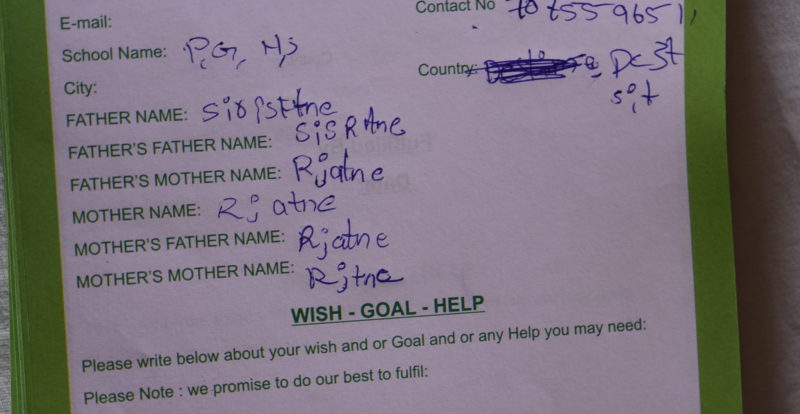 Contact No
E-mail:
School Name: P.G. H.S
City:
Country:
FATHER NAME:
FATHER'S FATHER NAME:
FATHER'S MOTHER NAME: Rjatne
MOTHER NAME: Rj atne
MOTHER'S FATHER NAME: Rjatne
MOTHER'S MOTHER NAME: Rjtne
WISH - GOAL - HELP
Please write below about your wish and or Goal and or any Help you may need:
Please Note : we promise to do our best to fulfil: